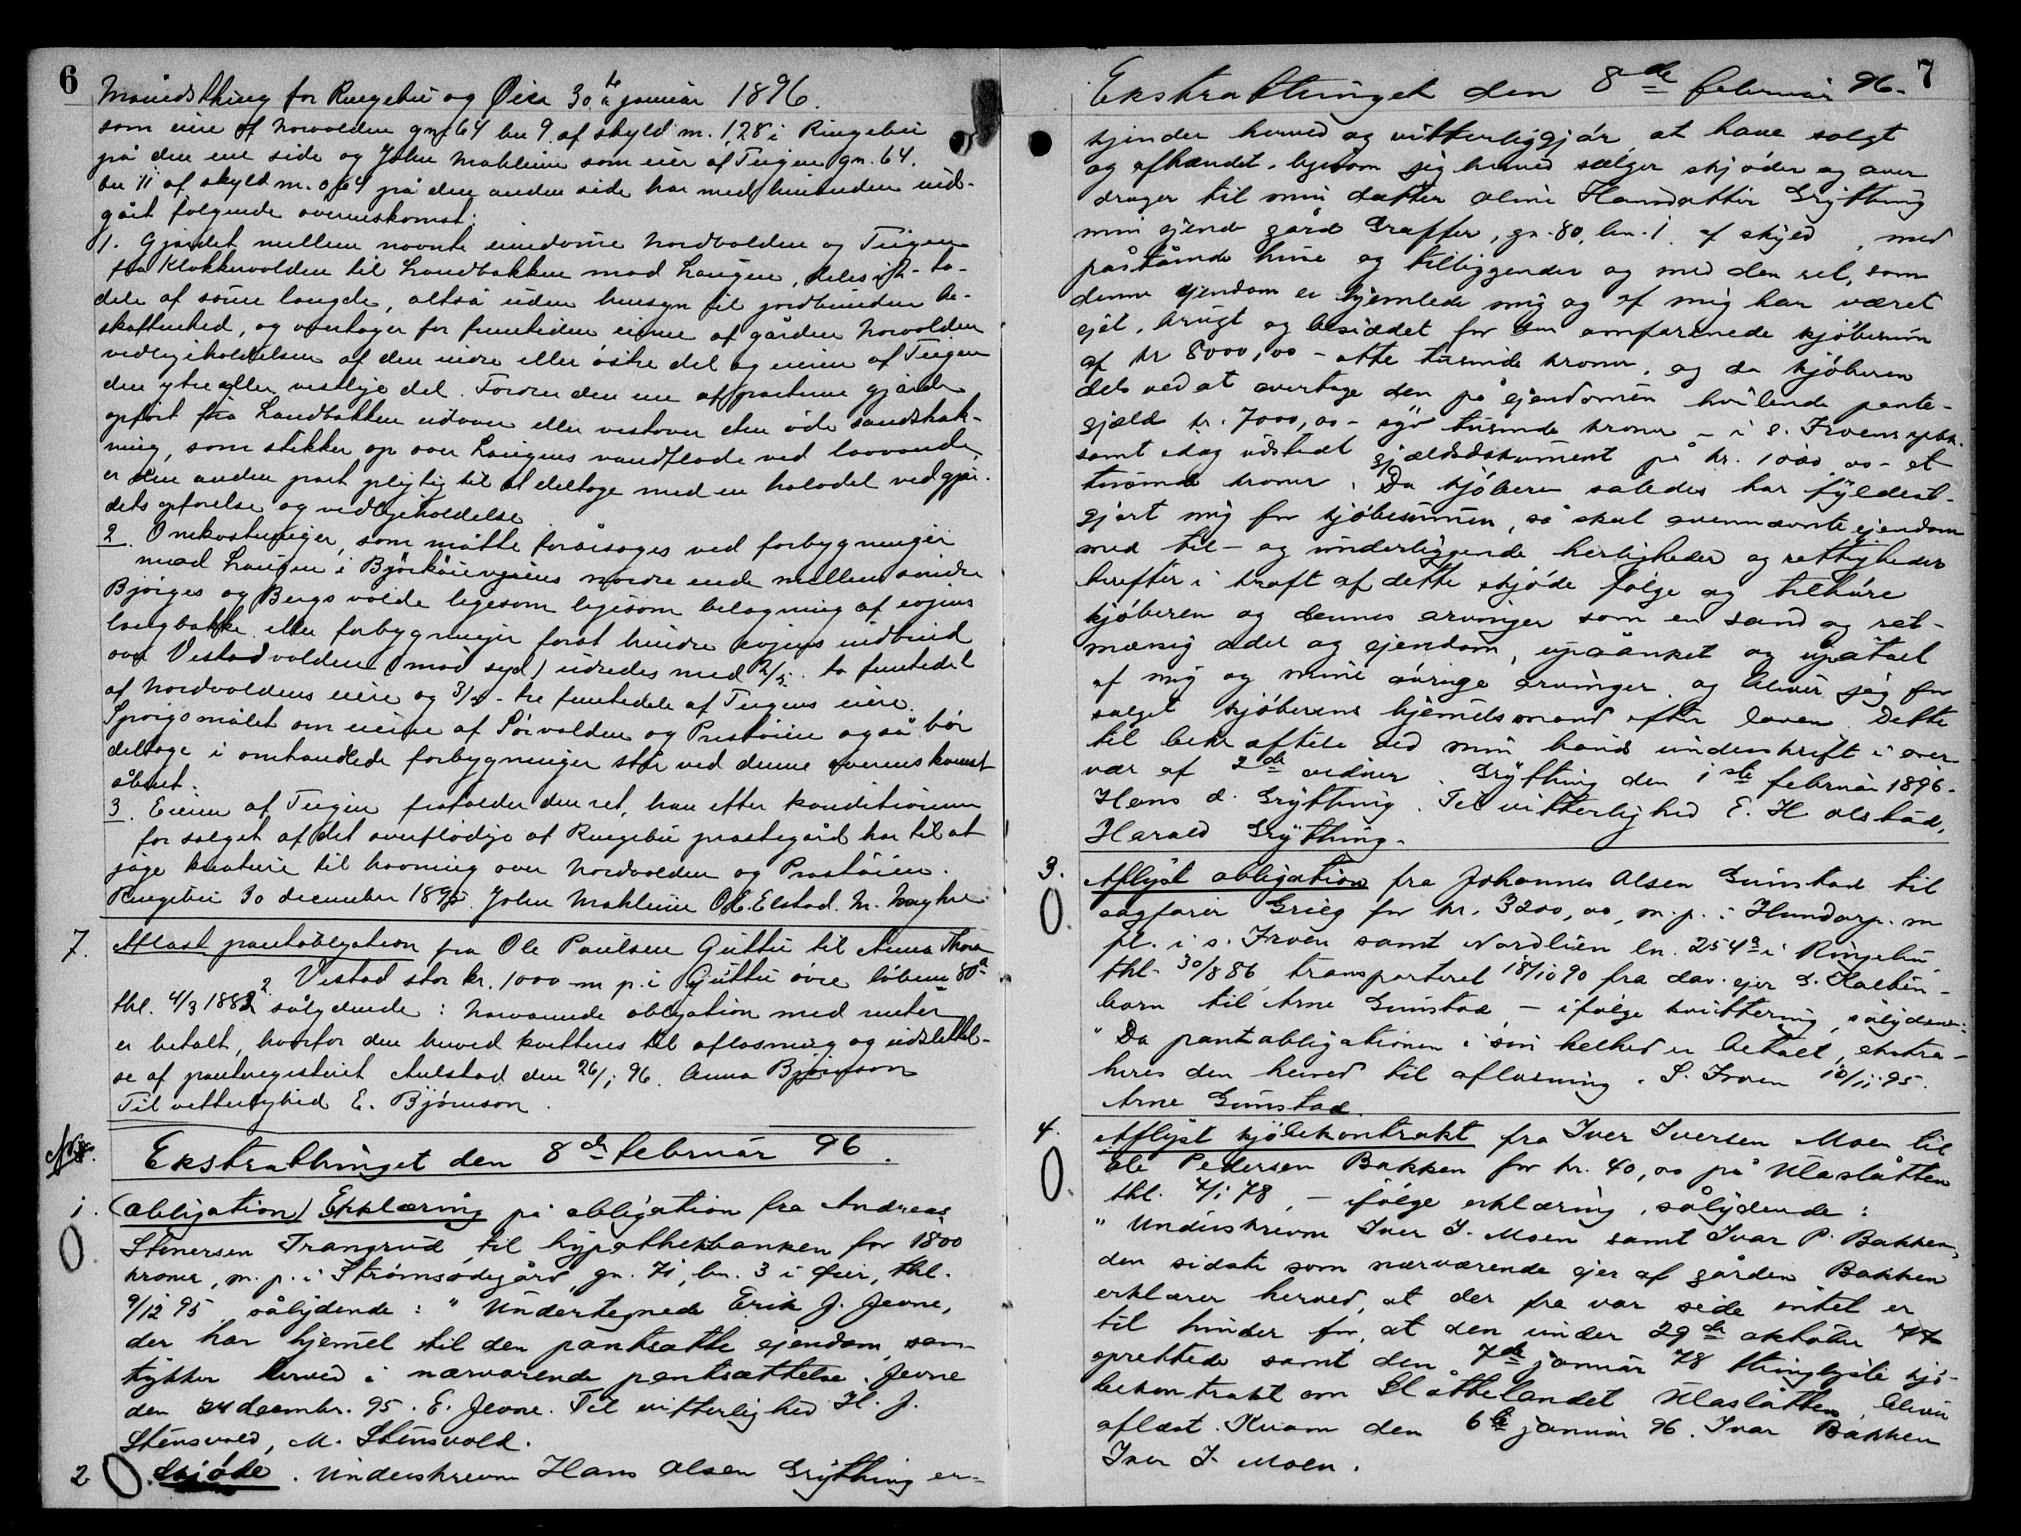 6
Månedsthing for Ringebu og Øier 30te januar 1896.
som eier af Norvolden gn. 64 bn 9 af skyld m. 1,28 i Ringebu
på den ene side og John Mohlum som eier af Teigen gn. 64.
bn 11 af skyld m. 0,64 på den anden side har med hinanden ind-
gået følgende overenskomst:
1. Gjærdet mellem nævnte eiendomme Nordvolden og Teigen
fra Klokkervolden til Landbakken mod Laugen, deles i to
dele af samme længde, altså uden hensyn til jordbundens be-
skaffenhed, og overtager for fremtiden eieren af gården Norvolden
vedligeholdelsen af den indre eller østre del og eieren af Teigen
den ytre eller vestlige del. Fordrer den ene af parterne gjærde
opført fra Landbakken udover eller vestover den øde sandstræk-
ning, som stikker op over Laugens vandflade ved lavvande,
er den anden part pligtig til at deltage med en halvdel ved gjær-
dets opførelse og vedligeholdelse
2. Omkostninger, som måtte forårsages ved forbygninger
mod Laugen i nordre ende mellem søndre
Bjørges og Bergs volde ligesom ligesom belægning af evjens
langbakke eller forbygninger forat hindre evjens indbrud
over Vestadvolden (mod syd) udredes med 2/5 to femtedel
af Nordvoldens eier og 3/5 - tre femtedele af Teigens eier.
Spørgsmålet om eierne af Sørvolden og Prestøien også bør
deltage i omhandlede forbygninger står ved denne overenskomst
åbent.
3. Eieren af Teigen frafalder den ret, han efter konditionerne
for salget af det overflødige af Ringebu prestegård har til at
jage kreature til havning over Nordvolden og Prestøien.
Ringebu 30 december 1895. John Mohlum O. E. Elstad. N.
7. Aflæst pantobligation fra Ole Paulsen Guttu til Anna Thora
Vestad stor kr. 1000 m p. i Guttu øvre løbenr 80a
thl. 4/3 1882 sålydende: Nærværende obligation med renter
er betalt, hvorfor den herved kvitteres til aflæsning og udslettel-
se af panteregisteret Aulstad den 26/1 96. Anna Bjørnson
Til vitterlighed E. Bjørnson.
Ekstrathinget den 8de februar 96.
1. (Obligation) Erklæring på obligation fra Andreas
Stenersen Trangrud til hypothekbanken for 1800
kroner, m. p. i Strømsødegård, gn. 71, bn. 3 i Øier, thl.
9/12 95 sålydende: " Undertegnede Erik J. Jevne,
der har hjemel til den pantsatte ejendom, sam-
tykker herved i nærværende pantsættelse. Jevne
den 24 decembr. 95. E. Jevne. Til vitterlighed H. J.
Stensvold, M. Stensvold.
2. Skjøde. Underskrevne Hans Olsen Grytting er-
7
Ekstrathinget den 8de februar 96.
kjender herved og vitterliggjør at have solgt
og afhændet, ligesom jeg herved sælger skjøder og over
drager til min datter Oline Hansdatter Grytting
min ejende gård Graffer, gn. 80, bn. 1 af skyld , med
påstående huse og tilliggender og med den ret, som
denne ejendom er hjemlede mig og af mig har været
ejet, brugt og besiddet for den omforenede kjøbesum
af kr 8000,00 - otte tusinde kroner, og da kjøberen
dels ved at overtage den på ejendommen hvilende pante-
gjæld kr. 7000,00 - syv tusinde kroner - i s. Froens
samt idag udstedt gjældsdokument på kr. 1000,00 - et
tusinde kroner. Da kjøberen således har fyldest-
gjort mig for kjøbesummen, så skal ovennævnte ejendom
med til- og underliggende herligheder og rettigheder
herefter i kraft af dette skjøde følge og tilhøre
kjøberen og dennes arvinger som en sand og ret-
mæssig odel og ejendom, upåanket og upåtalt
af mig og mine øvrige arvinger og bliver jeg for
salget kjøberens hjemmelsmand efter loven. Dette
til bekræftelse med min hånds underskrift i over-
vær af 2de vidner. Grytting den 1ste februar 1896.
Hans O. Grytting. Til vitterlighed E. H Olstad,
Harald Grytting.
3. Aflyst obligation fra Johannes Olsen Gunstad til
sagfører Grieg for kr. 3200,00, m. p. i Hundorp. m
pl. i s. Froen samt Nordlien ln. 254a i Ringebu,
thl. 30/8 86, transporteret 18/10 90 fra dav. ejer S. Kalten-
born til Arne Gunstad - ifølge kvittering, sålydende:
" Da pantobligationen i sin helhed er betalt, ekstra-
heres den herved til aflæsning. S. Froen 10/11 95.
Arne Gunstad.
4. Aflyst kjøbekontrakt fra Iver Iversen Moen til
Ole Pedersen Bakken for kr. 40,00 på Ulaslåtten
thl. 7/1 78, - ifølge erklæring, sålydende:
" Underskrevne Iver I. Moen samt Ivar P. Bakken,
den sidste som nærværende ejer af gården Bakken
erklærer herved, at der fra vor side intet er
til hinder for, at den under 29de oktober 77
oprettede samt den 7de januar 78 thinglyste kjø-
bekontrakt om Slåttelandet Ulaslåtten, bliver
aflæst. Kvam den 6te januar 96. Ivar Bakken
Iver I. Moen.